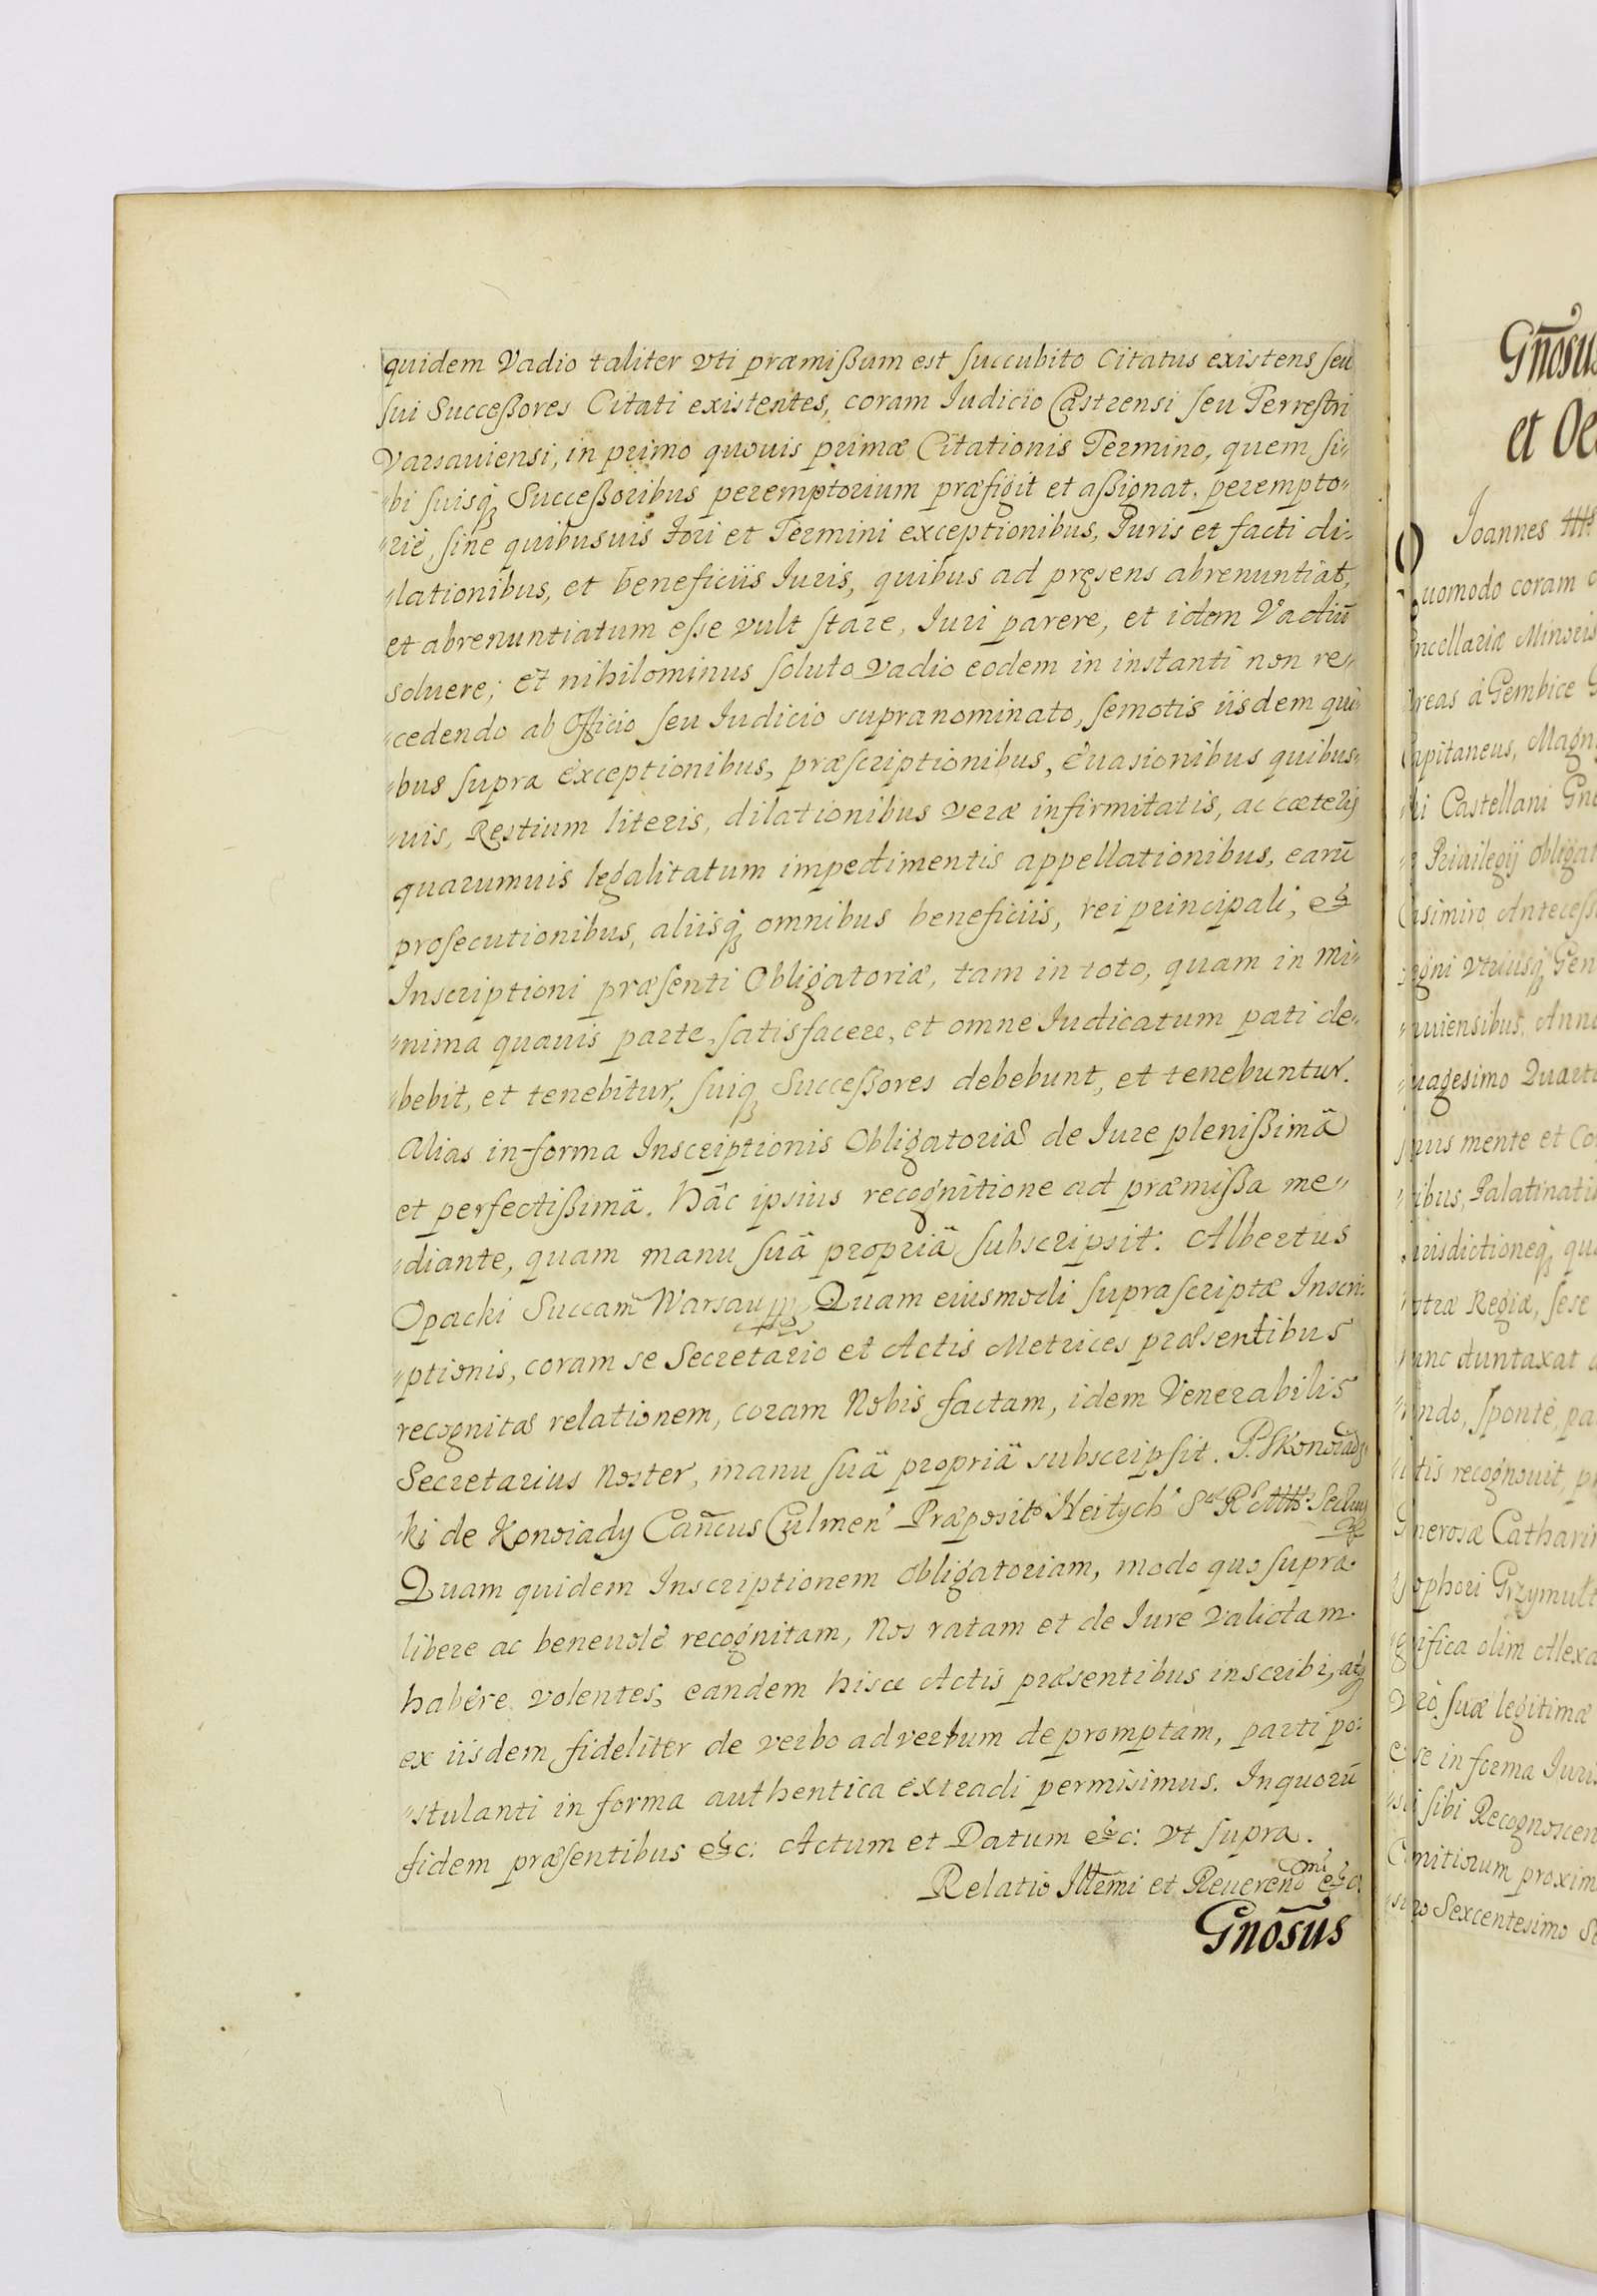 quidem Vadio taliter vti præmißum est succubito Citatus existens seu
sui Succeßores Citati existentes, coram Iudicio Castrensi seu Terrestri
Varsauiensi, in primo quouis primæ Citationis Termino, quem si„
„bi suisq3 Succeßoribus peremptorium præfigit et aßignat, perempto„
„riè, sine quibusuis fori et Termini exceptionibus, Iuris et facti di„
„lationibus, et beneficiis Iuris, quibus ad præsens abrenuntiat,
et abrenuntiatum esse vult stare, Iuri parere, et idem Vadiū
soluere; et nihilominus soluto vadio eodem in instanti non re„
„cedendo ab Officio seu Iudicio supranominato, semotis iisdem qui„
„bus supra exceptionibus, præscriptionibus, euasionibus quibus„
„uis, Restium literis, dilationibus veræ infirmitatis, ac cæteris
quarumuis legalitatum impedimentis appellationibus, earū
prosecutionibus, aliisq3 omnibus beneficiis, rei principali, et
Inscriptioni præsenti Obligatoriæ, tam in toto, quam in mi„
„nima quauis parte, satisfacere, et omne Iudicatum pati de„
„bebit, et tenebitur, suiq3 Succeßores debebunt, et tenebuntur.
Alias in forma Inscriptionis Obligatoriæ de Iure plenißimâ
et perfectißimâ. Hâc ipsius recognitione ad præmißa me„
„diante, quam manu suâ propriâ subscripsit: Albertus
Opacki Succam Warsau Quam eiusmodi suprascriptæ Inscri„
„ptionis, coram se Secretario et Actis Metrices præsentibus
recognitæ relationem, coram Nobis factam, idem Venerabilis
Secretarius Noster, manu suâ propriâ subscripsit. P. Skonoiads„
„ki de Konoiady Cañcus Culmen Præposito
Quam quidem Inscriptionem obligatoriam, modo quo supra
libere ac beneuolè recognitam, Nos ratam et de Iure validam
habere volentes, eandem hisce Actis præsentibus inscribi, atq3
ex iisdem fideliter de verbo ad verbum depromptam, parti po„
„stulanti in forma authentica extradi permisimus. In quorū
fidem præsentibus etc: Actum et Datum etc: vt supra.
Relatio Illēmi et Reuerendmi etc
Gnōsus
Gnōsus
et
Joannes IIIs
uomodo coram
ncellariæ Minoris
reas à Gembice
apitaneus, Magn
Castellani Gn
Priuilegij obligat
asimiro Antecess
egni vtriusq3 Gen
uiensibus, Anno
uagesimo Quarto
nus mente et Co
ibus, Palatinati
urisdictioneq3, qu
ostræ Regiæ, sese
unc duntaxat
ndo, sponte, pa
tis recognouit, pr
nerosæ Catharin
ophori Grzymult
ifica olim Alexa
rò suæ legitimæ
se in forma Iuris
sibi Recognoscen
mitiorum proxim
Sexcentesimo Se